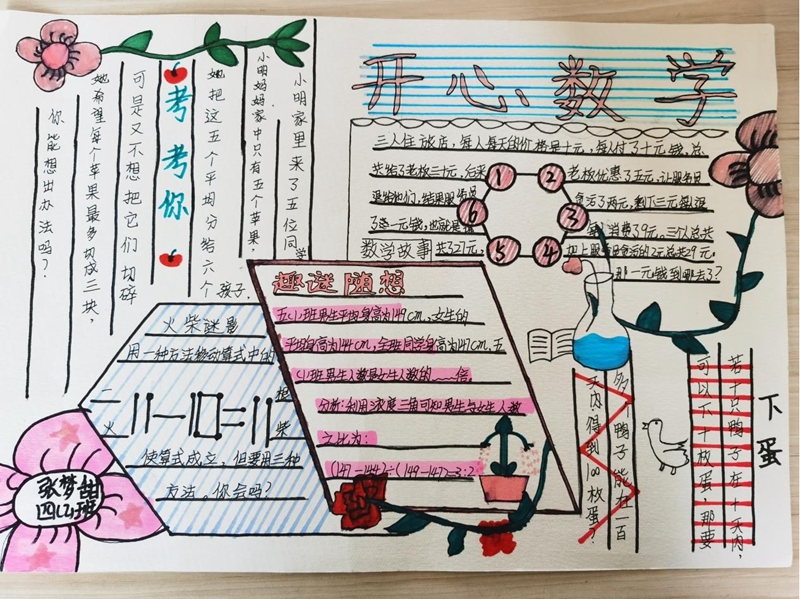 开心数学
小明家里来了五位同学
小明妈妈家中只有五个苹果，
她把这五个平均分给六个孩子.
考考你
可是又不想把它们切碎
她希望每个苹果最多切成三块，
你能想出办法吗？
三人住旅店，每人每天的价格是十元，每人付了十元钱，总
共给了老板三十元，后来
老板优惠了五元，让服务员
退给他们，结果服务员
贪污了两元，剩下三元每退
了一元钱，也就是说
每人消费了9元，三个人总共
数学故事
共3了27元，
加上服务员贪污的2元总共29元，
那一元钱到哪去了？
1
2
3
4
5
6
趣谜随想
五(1)班男生平均身高为149cm，女生的
平均身高为144cm，全班同学身高为147cm，五
(1)班男生人数是女生人数的……倍。
分析：利用浓度三角可知男生与女生人数
之比为：
(147-144)÷(149-147)=3:2
火柴谜影
用一种方法移动算式中的
二
火
根
柴
使算式成立，但要用三种
方法，你会吗？
下蛋
若十只鸭子在十天内，
可以下十枚蛋，那要
多少鸭子能在一百
天内得到100枚蛋？
张梦甜
四(2)班